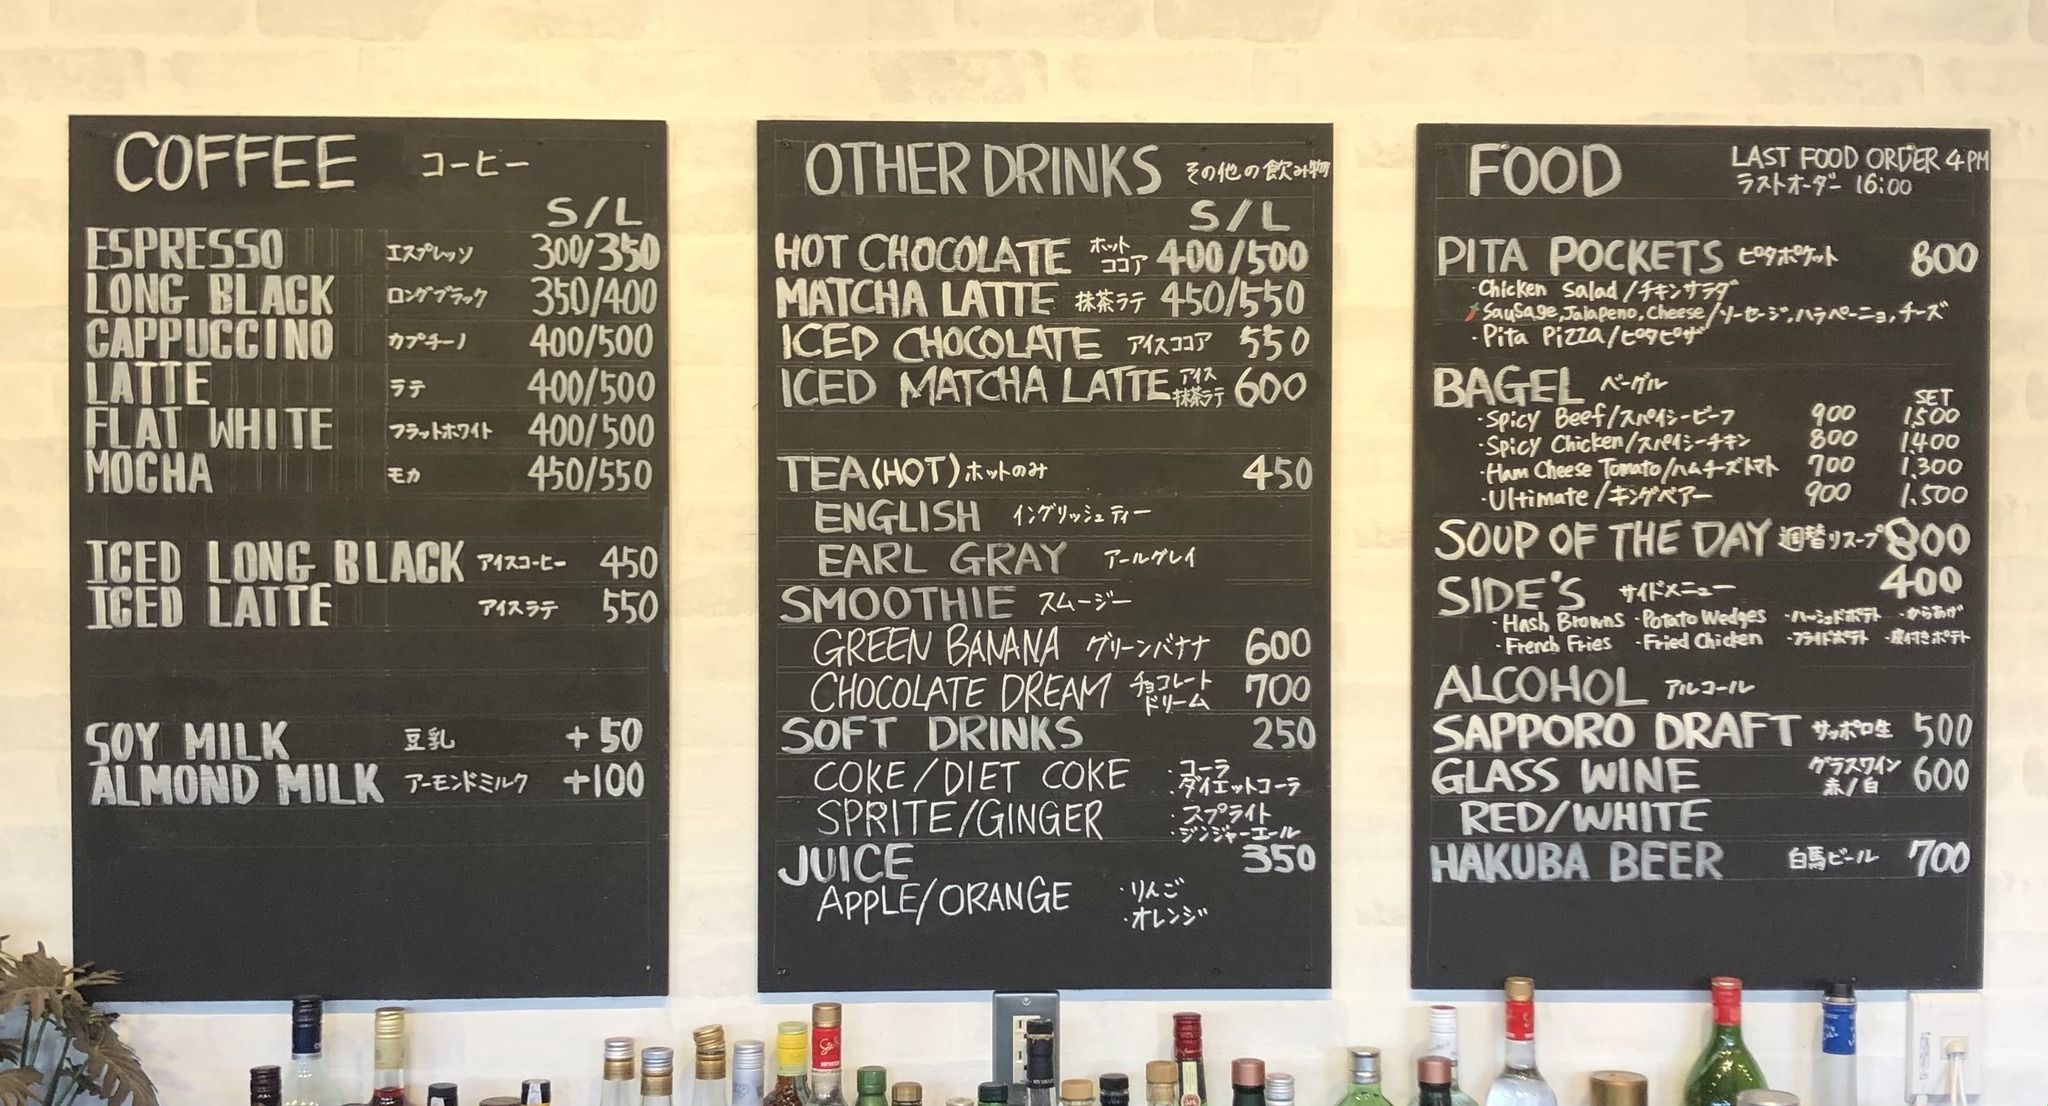 COFFEE コーヒー
S/L
ESPRESSO エスプレッソ 300/350
LONG BLACK ロングブラック 350/400
CAPPUCCINO カプチーノ 400/500
LATTE ラテ 400/500
FLAT WHITE フラットホワイト 400/500
MOCHA モカ 450/550
ICED LONG BLACK アイスコーヒー 450
ICED LATTE アイスラテ 550
SOY MILK 豆乳 +50
ALMOND MILK アーモンドミルク +100
OTHER DRINKS その他の飲み物
S/L
HOT CHOCOLATE ホットココア 400/500
MATCHA LATTE 抹茶ラテ 450/550
ICED CHOCOLATE アイスココア 550
ICED MATCHA LATTE アイス抹茶ラテ 600
TEA(HOT) ホットのみ 450
ENGLISH イングリッシュティー
EARL GRAY アールグレイ
SMOOTHIE スムージー
GREEN BANANA グリーンバナナ 600
CHOCOLATE DREAM チョコレートドリーム 700
SOFT DRINKS 250
COKE/DIET COKE ・コーラ
・ダイエットコーラ
SPRITE/GINGER ・スプライト
・ジンジャーエール
JUICE 350
APPLE/ORANGE ・りんご
・オレンジ
FOOD LAST FOOD ORDER 4PM
ラストオーダー 16:00
PITA POCKETS ピタポケット 800
・Chicken Salad/チキンサラダ
Sausage, Jalapeno, Cheese/ソーセージ,ハラペーニョ,チーズ
・Pita Pizza/ピタピザ
BAGEL ベーグル SET
・Spicy Beef/スパイシービーフ 900 1,500
・Spicy Chicken/スパイシーチキン 800 1,400
・Ham Cheese Tomato/ハムチーズトマト 700 1,300
・Ultimate/キングベアー 900 1,500
SOUP OF THE DAY 週替りスープ 800
SIDE'S サイドメニュー 400
・Hash Browns ・Potato Wedges ・ハッシュドポテト ・からあげ
・French Fries ・Fried Chicken ・フライドポテト ・皮付きポテト
ALCOHOL アルコール
SAPPORO DRAFT サッポロ生 500
GLASS WINE グラスワイン 赤/白 600
RED/WHITE
HAKUBA BEER 白馬ビール 700